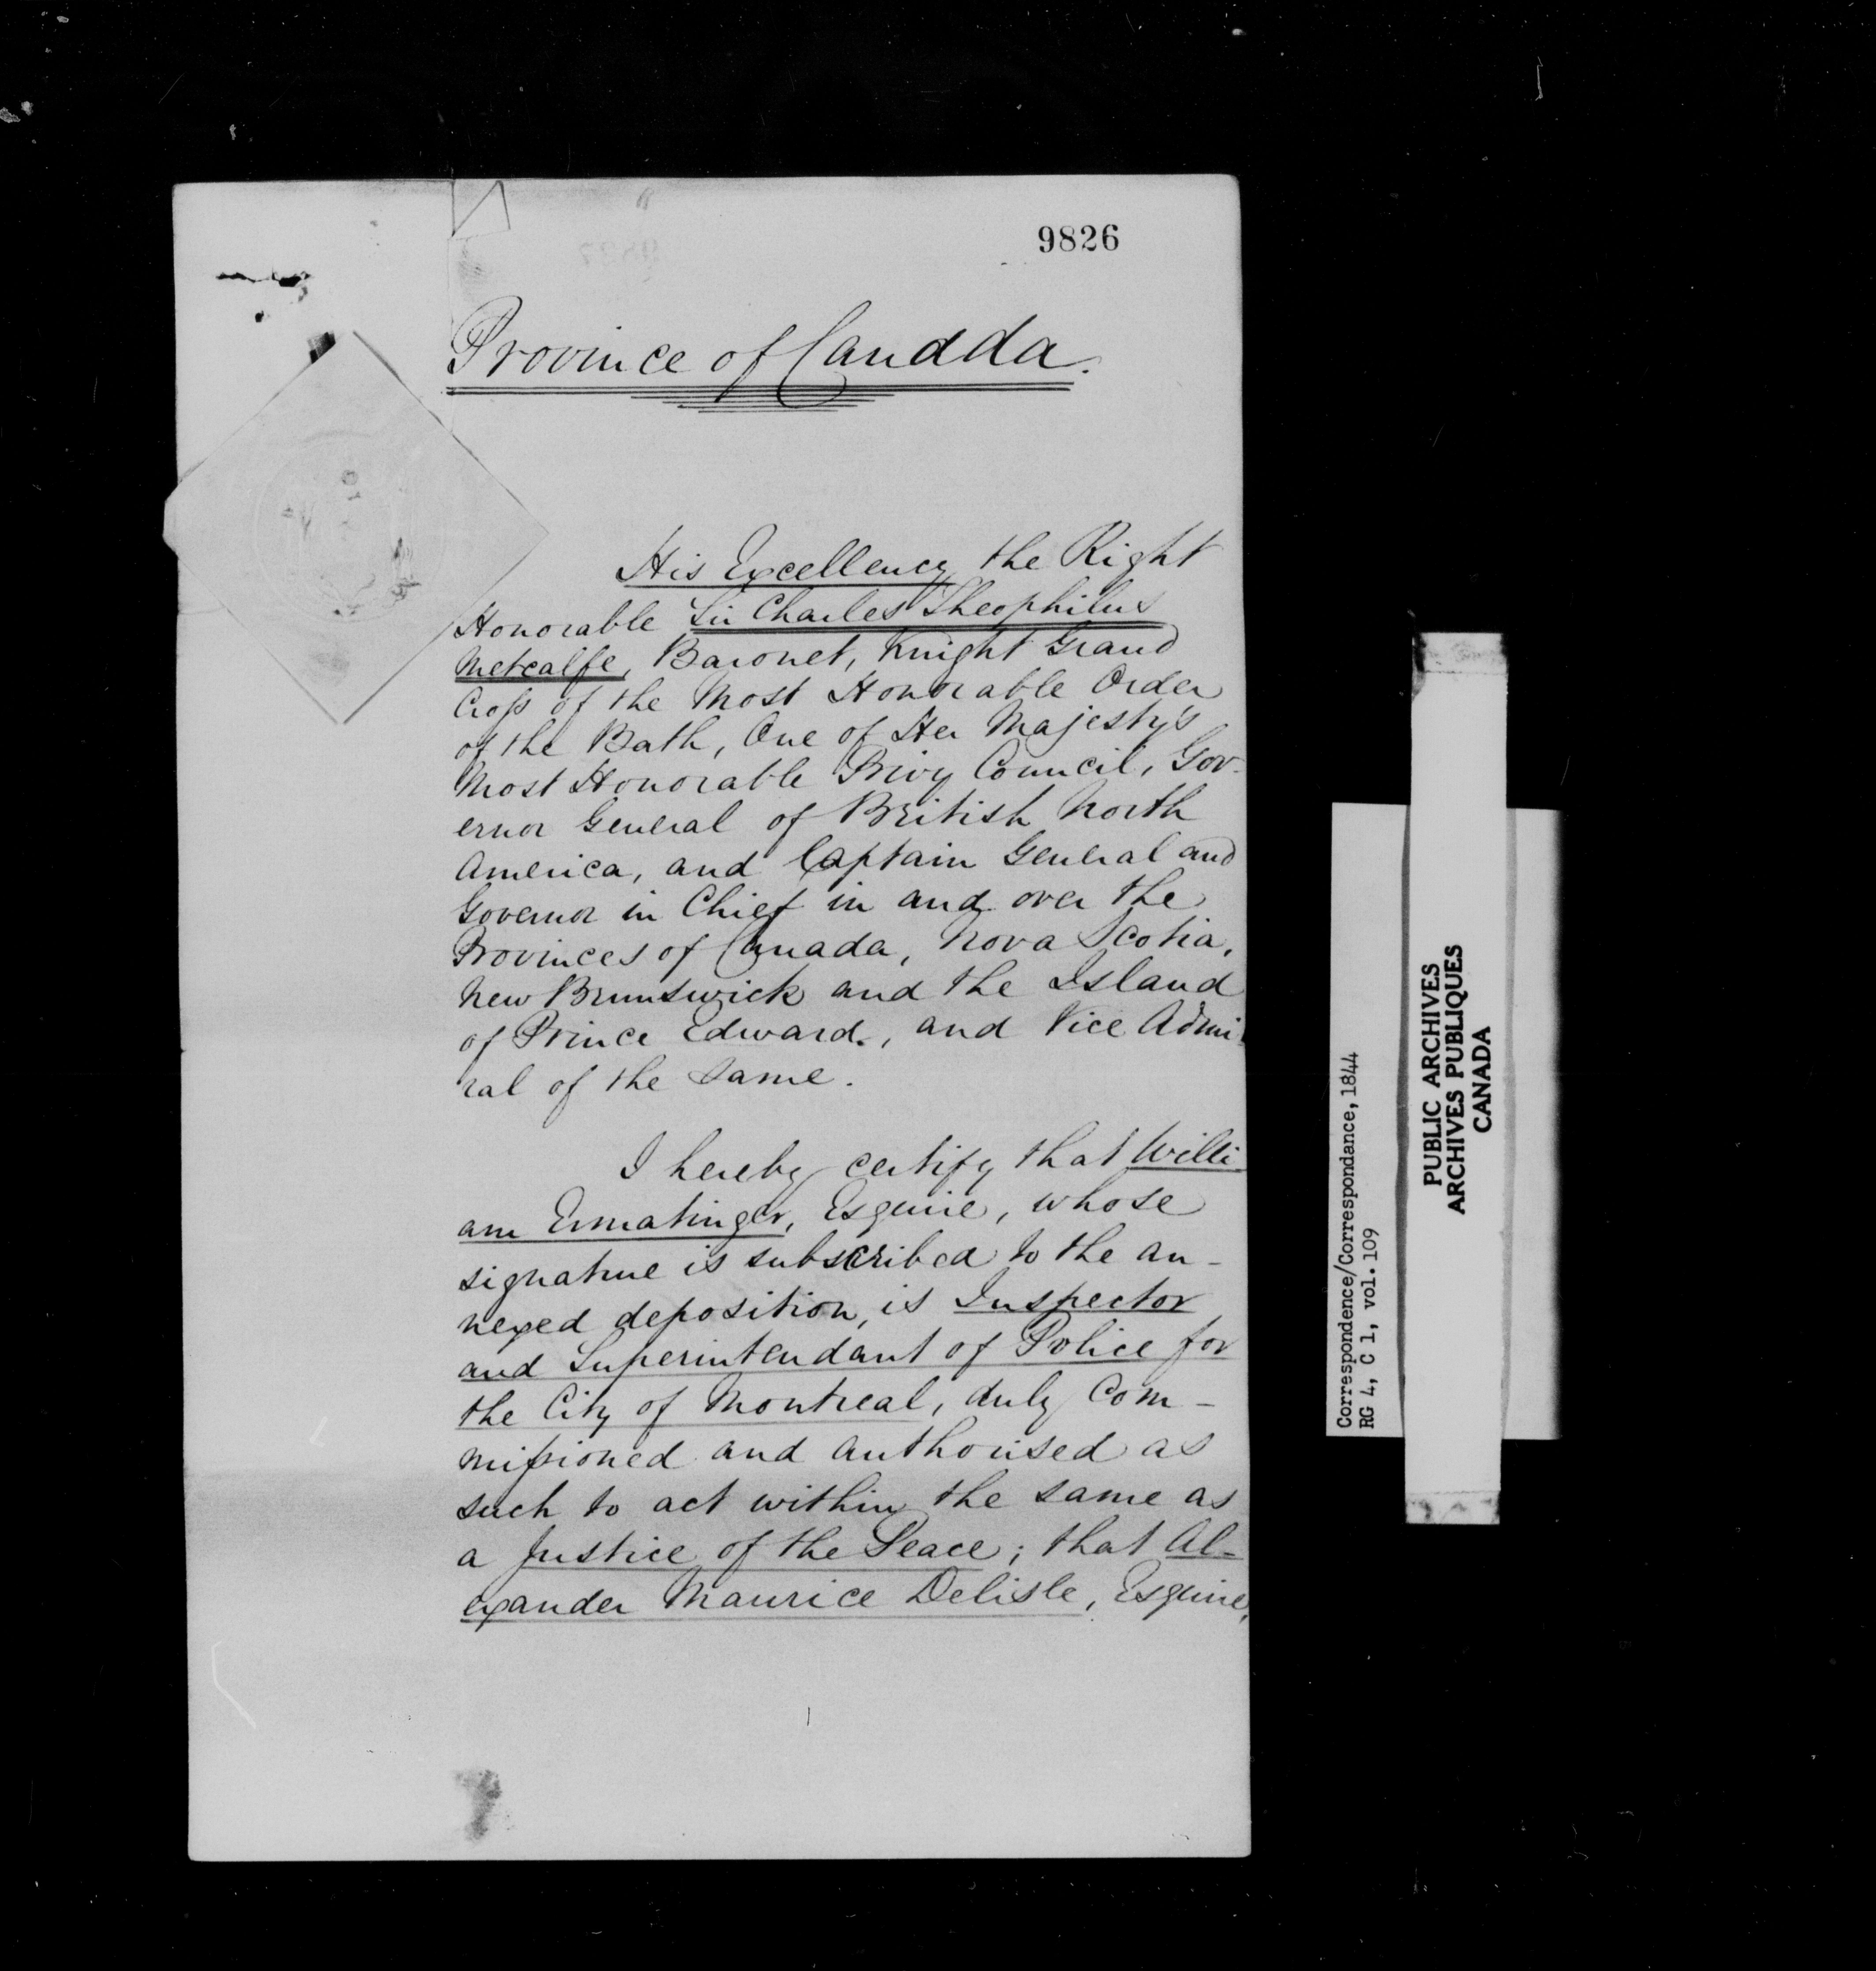 9826
Province of Canadda.
His Excellency the Right
Honorable Sir Charles Theophilus
Metcalfe, Baronet, Knight Grand
Cross of the Most Honorable Order
of the Bath, One of Her Majesty's
Most Honorable Privy Council, Gov-
ernor General of British North
America, and Captain General and
Governor in Chief in and over the
Provinces of Canada, Nova Scotia,
New Brunswick and the Island
of Prince Edward, and Vice Admi-
ral of the Same.
I hereby certify that Willi-
am Ermatinger, Esquire, whose
signature is subscribed to the an-
nexed deposition, is Inspector
and Superintendant of Police for
the City of Montreal, duly Com-
missioned and authorised as
such to act within the same as
a Justice of the Peace; that Al-
exander Maurice Delisle, Esquire,
Correspondence/Correspondance, 1844
RG 4, C 1, vol. 109
PUBLIC ARCHIVES
ARCHIVES PUBLIQUES
CANADA